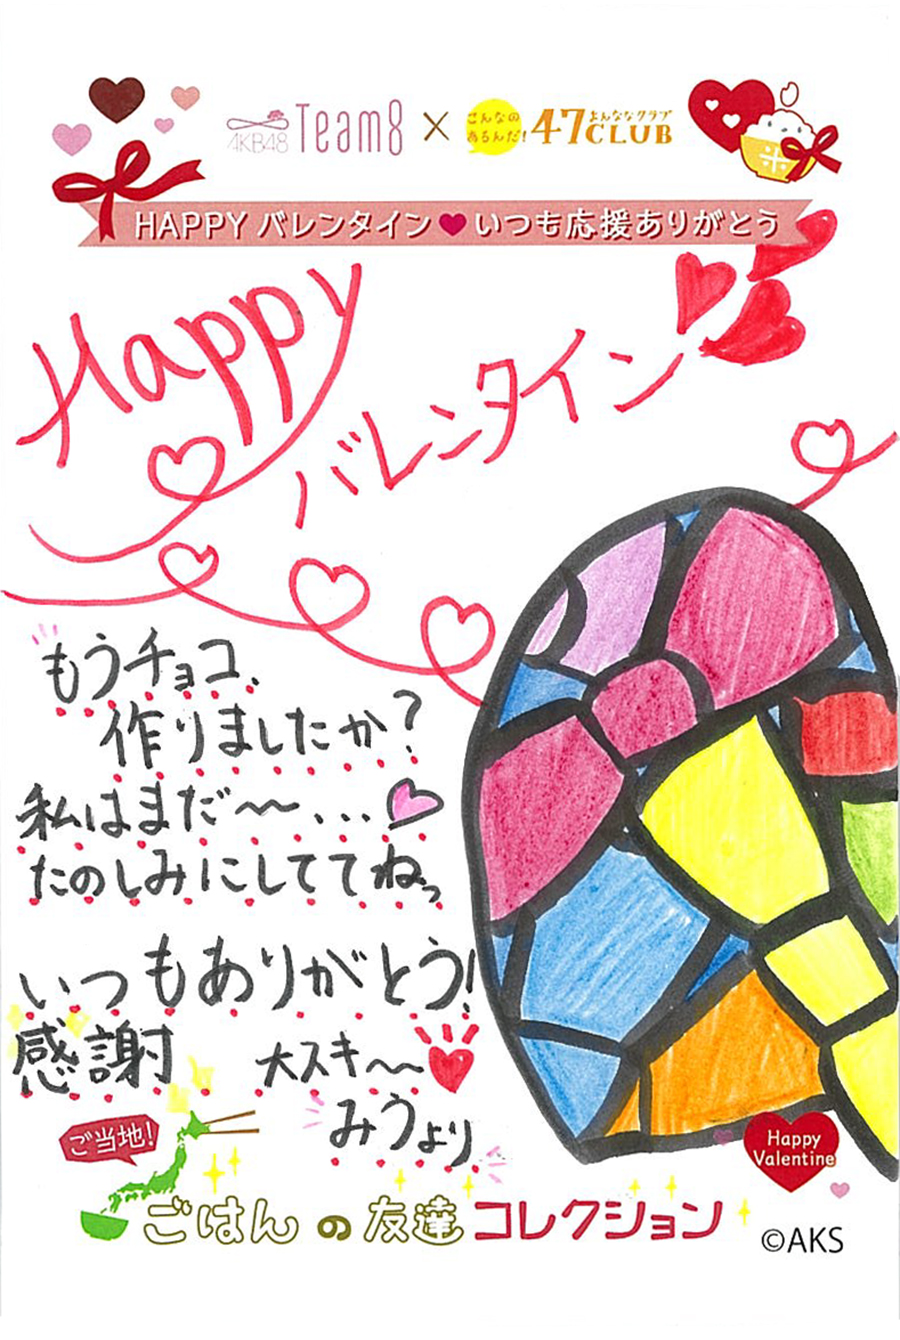 AKB48 Team8 × こんなのあるんだ! 47CLUB よんななクラブ
HAPPY バレンタイン♥いつも応援ありがとう
Happy
バレンタイン
もうチョコ、
作りましたか?
私はまだ〜〜...
たのしみにしててねっ
いつもありがとう!
感謝 大スキ〜〜
みうより
ご当地!
ごはんの友達コレクション
Happy
Valentine
©AKS